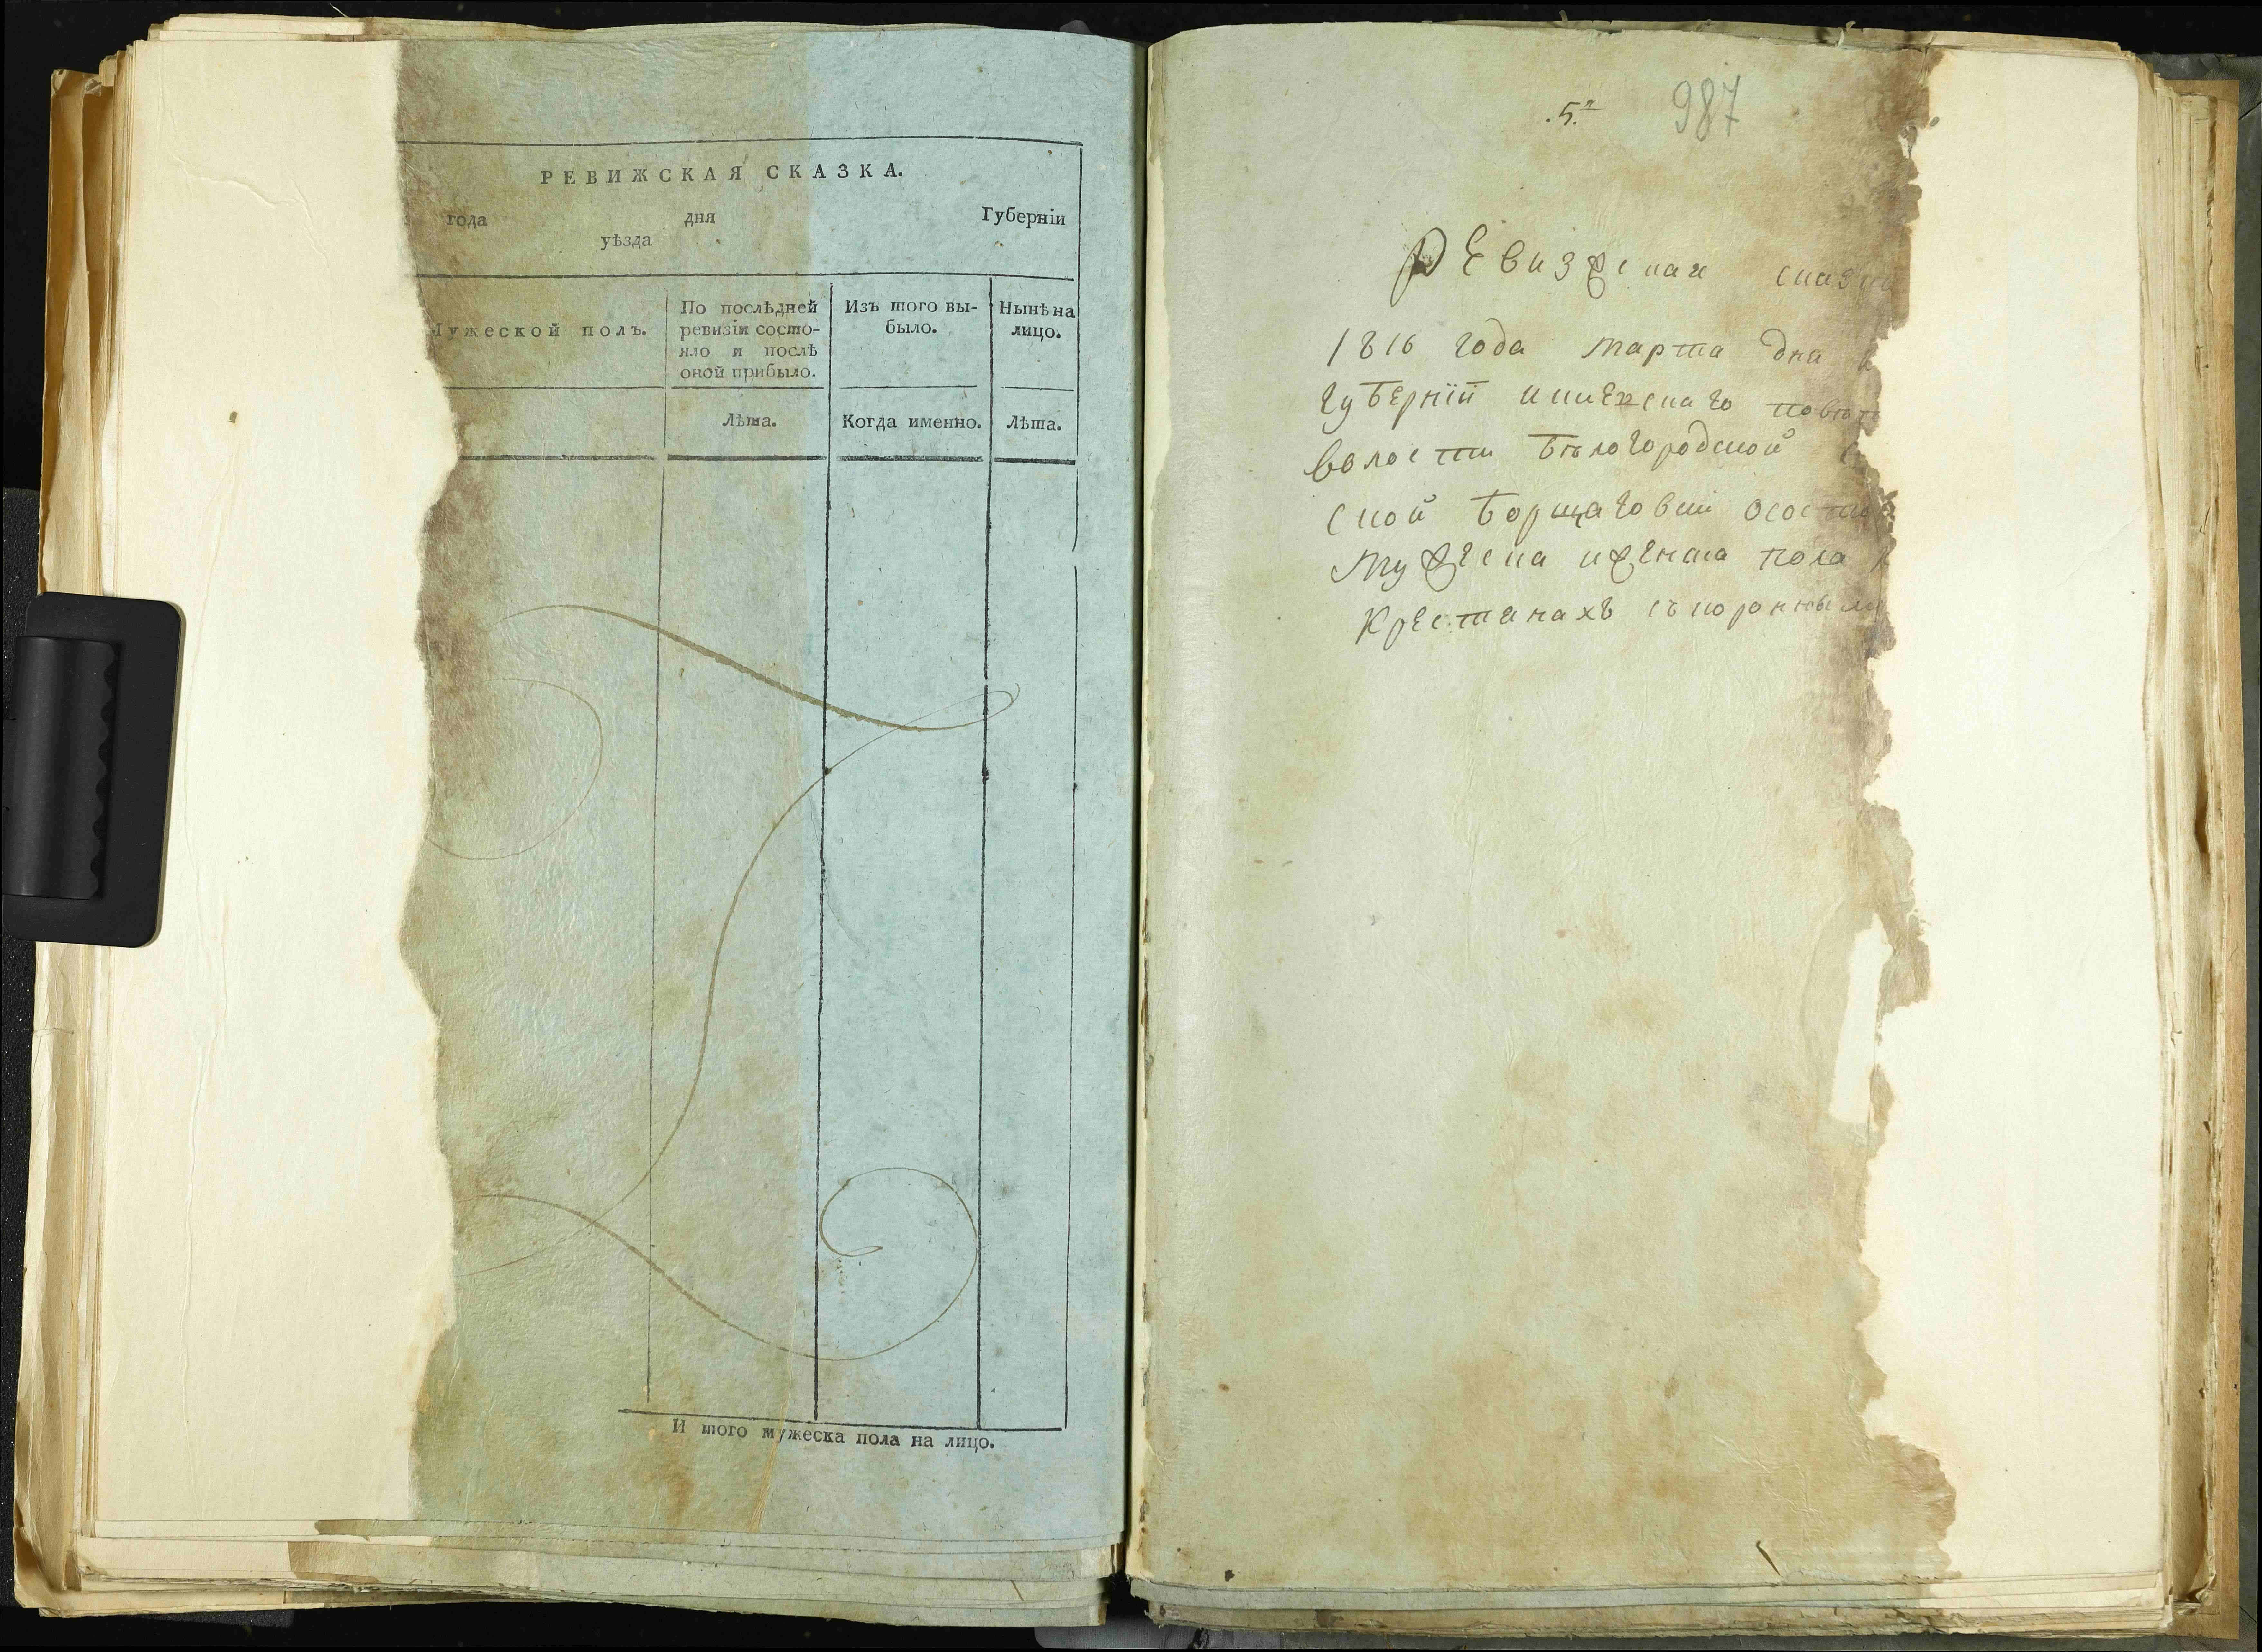 РЕВИЖСКАЯ СКАЗКА.
года дня Губерніи
уѣзда
Мужеской полъ.
По послѣдней
ревизіи состо-
яло и послѣ
оной прибыло.
Изъ того вы-
было.
Нынѣ на
лицо.
Лѣта.
Когда именно.
Лѣта.
И того мужеска пола на лицо.
.5.я 987
Ревизжская сказка
1816 года Марта дня
губерніи повѣт
волости Бѣлогородской
ской Борщаговки осост
Мужеска иженска пола
Крестянахъ